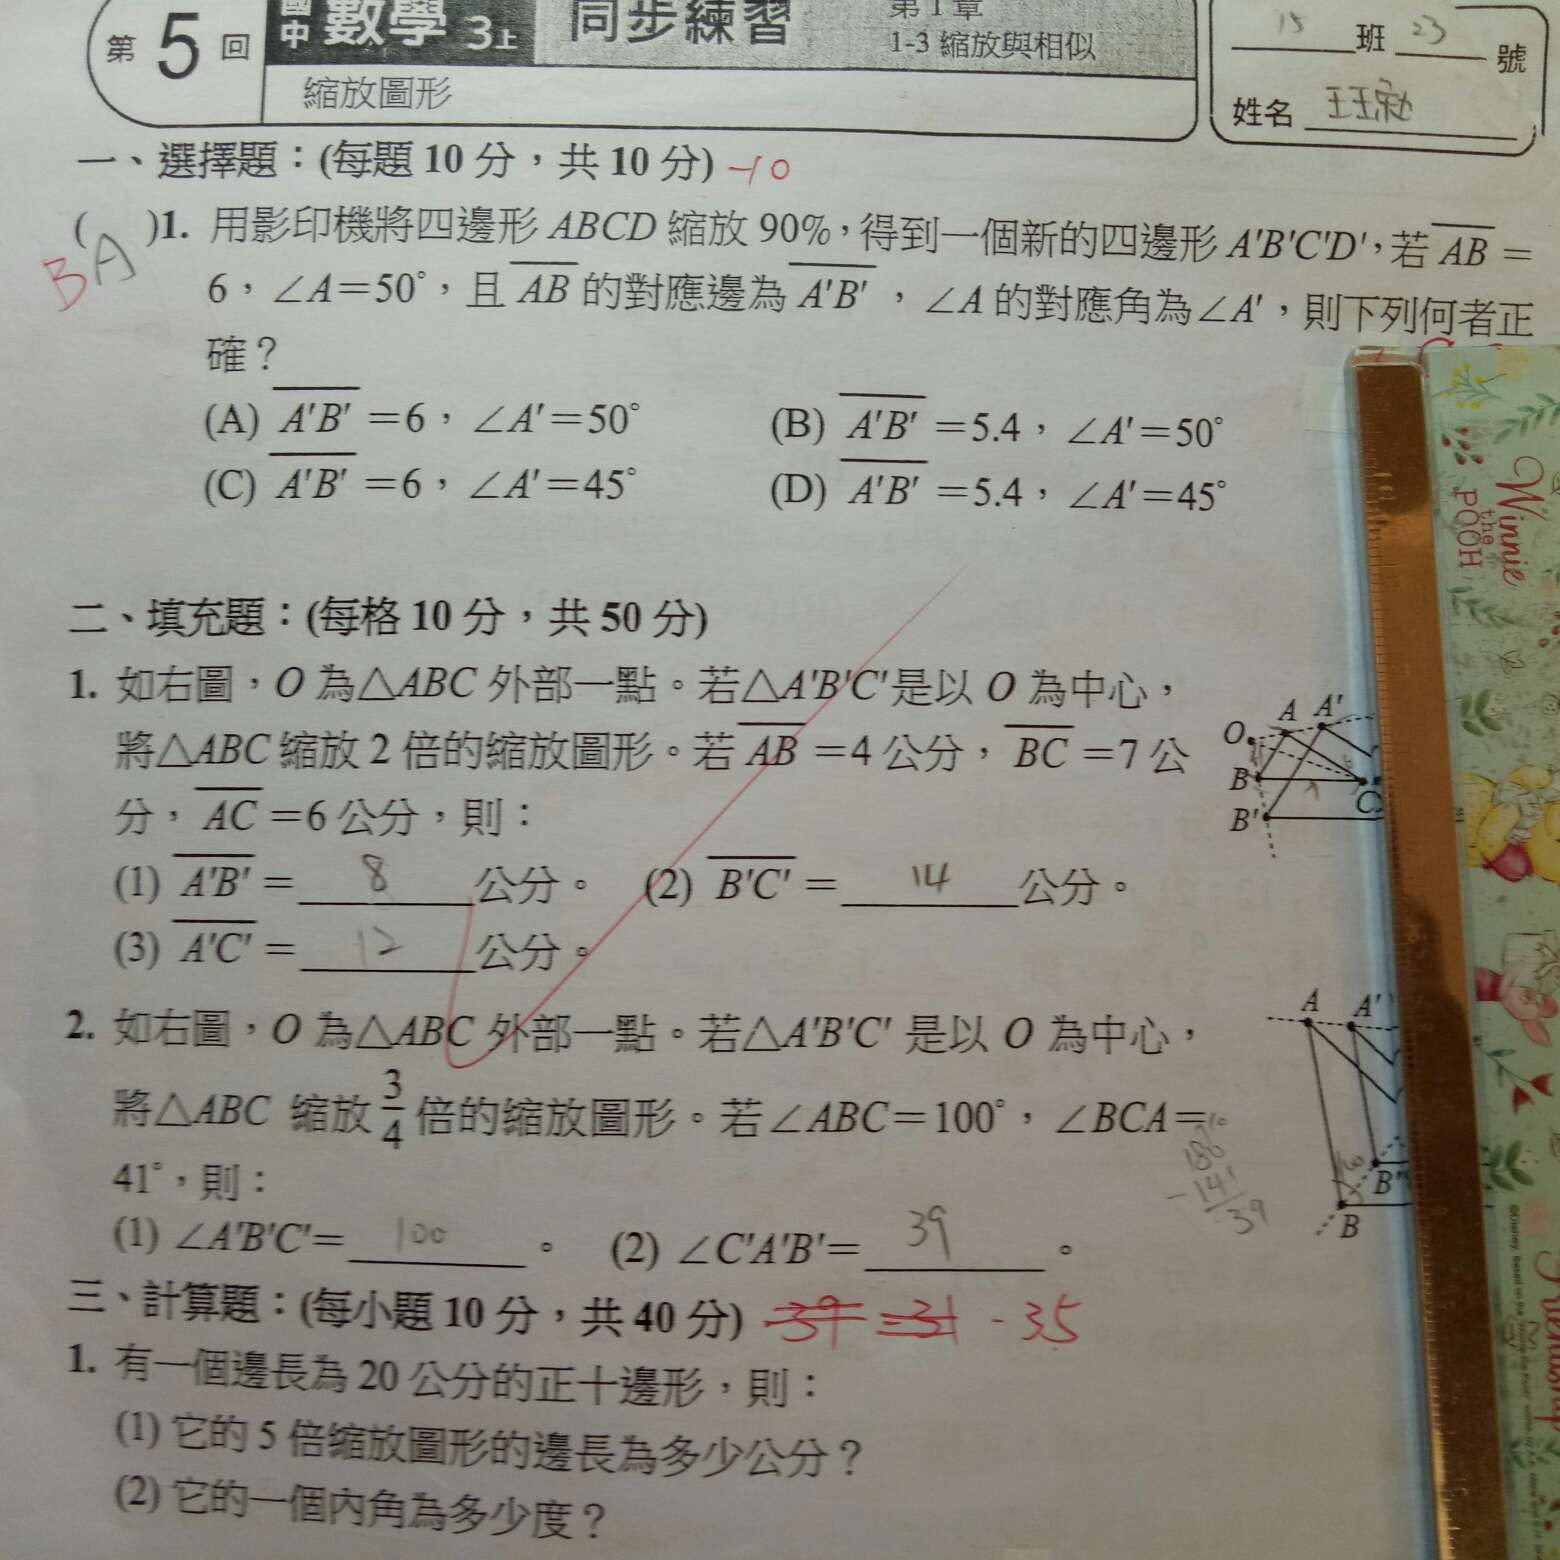 第 5 回
國中 數學 3上 同步練習
第1章
1-3 縮放與相似
縮放圖形
15 班 23 號
姓名
一、選擇題：(每題 10 分，共 10 分) -10
B A
( )1. 用影印機將四邊形 ABCD 縮放 90%，得到一個新的四邊形 A'B'C'D'，若 AB =
6，∠A=50°，且 AB 的對應邊為 A'B'，∠A 的對應角為∠A'，則下列何者正
確？
(A) A'B' =6，∠A'=50° (B) A'B' =5.4，∠A'=50°
(C) A'B' =6，∠A'=45° (D) A'B' =5.4，∠A'=45°
二、填充題：(每格 10 分，共 50 分)
1. 如右圖，O 為△ABC 外部一點。若△A'B'C'是以 O 為中心，
將△ABC 縮放 2 倍的縮放圖形。若 AB =4 公分，BC =7 公
分，AC =6 公分，則：
(1) A'B' = 8 公分。 (2) B'C' = 14 公分。
(3) A'C' = 12 公分。
O A A'
B C
B'
2. 如右圖，O 為△ABC 外部一點。若△A'B'C' 是以 O 為中心，
將△ABC 縮放 3/4 倍的縮放圖形。若∠ABC=100°，∠BCA=
41°，則：
(1) ∠A'B'C'= 100 。 (2) ∠C'A'B'= 39 。
180
-141
39
A A'
B'
B
三、計算題：(每小題 10 分，共 40 分) -35
1. 有一個邊長為 20 公分的正十邊形，則：
(1) 它的 5 倍縮放圖形的邊長為多少公分？
(2) 它的一個內角為多少度？
Winnie
the
POOH